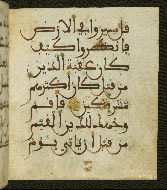 قل سيروا في الارض
فانظروا كيف
كان عقبة الذين
من قبل كان اكثرهم
مشركين فاقم
وجهك للدين القيم
من قبل ان ياتي يوم